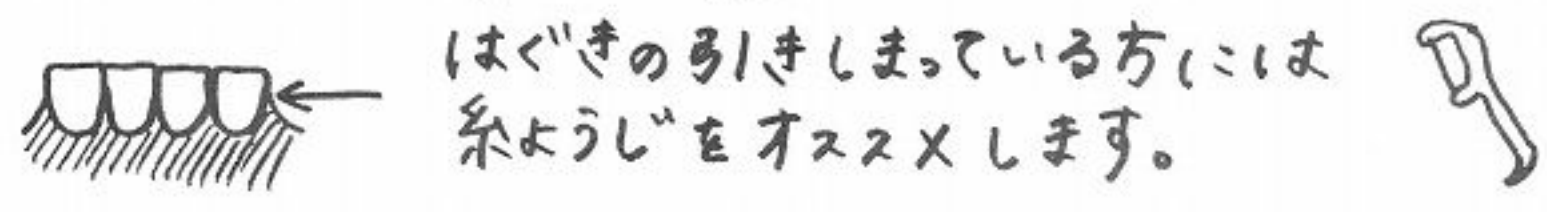 はぐきの引きしまっている方には
糸ようじをオススメします。